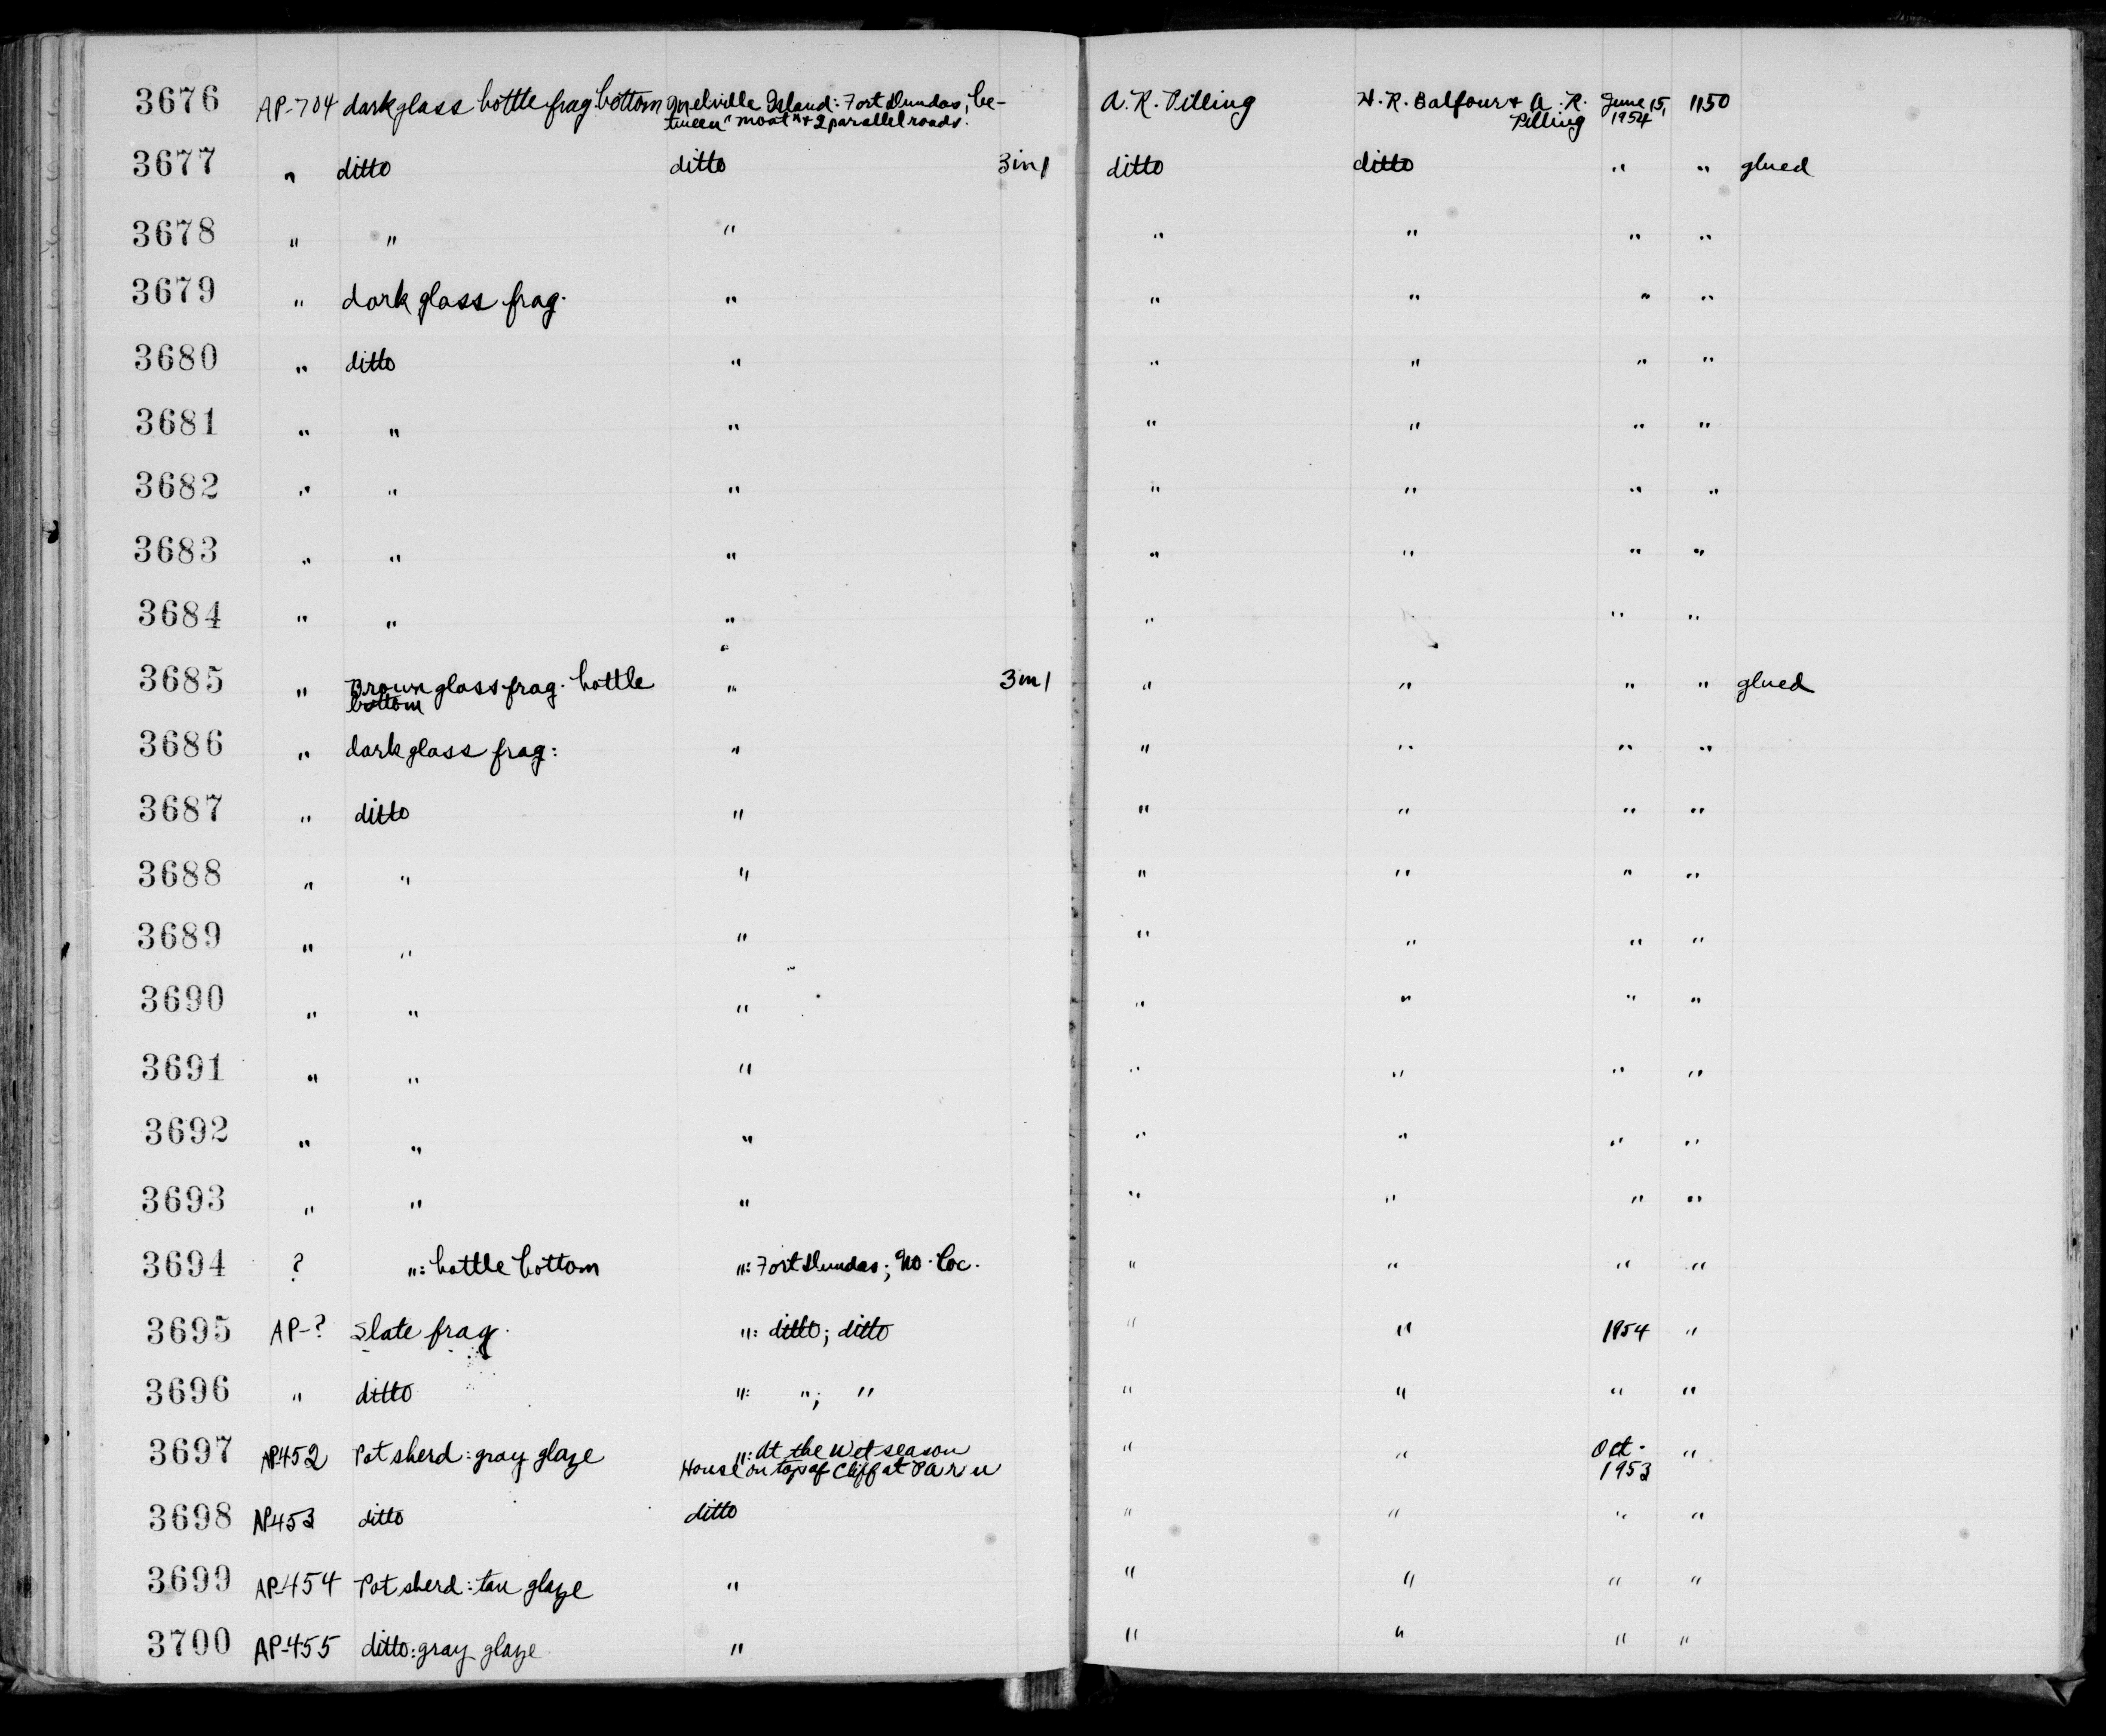 3676 AP-704 dark glass bottle frag. bottom Melville Island: Fort Dundas; be- A. R. Pilling H. R. Balfour + A. R. June 15, 1150
tween "moat" + 2 parallel roads. Pilling 1954
3677 " ditto ditto 3 in 1 ditto ditto " " glued
3678 " " " " " " "
3679 " dark glass frag. " " " " "
3680 " ditto " " " " "
3681 " " " " " " "
3682 " " " " " " "
3683 " " " " " " "
3684 " " " " " "
3685 " Brown glass frag. bottle " 3 in 1 " " " " glued
bottom
3686 " dark glass frag: " " " " "
3687 " ditto " " " " "
3688 " " " " " " "
3689 " " " " " " "
3690 " " " " " " "
3691 " " " " " " "
3692 " " " " " " "
3693 " " " " " " "
3694 ? ": bottle bottom ": Fort Dundas; no. loc. " " " "
3695 AP-? Slate frag. ": ditto; ditto " " 1954 "
3696 " ditto ": "; " " " " "
3697 AP-452 Pot sherd: gray glaze ": At the Wet season " " Oct. "
House on top of Cliff at Paru 1953
3698 AP-453 ditto ditto " " " "
3699 AP-454 Pot sherd: tan glaze " " " " "
3700 AP-455 ditto: gray glaze " " " " "